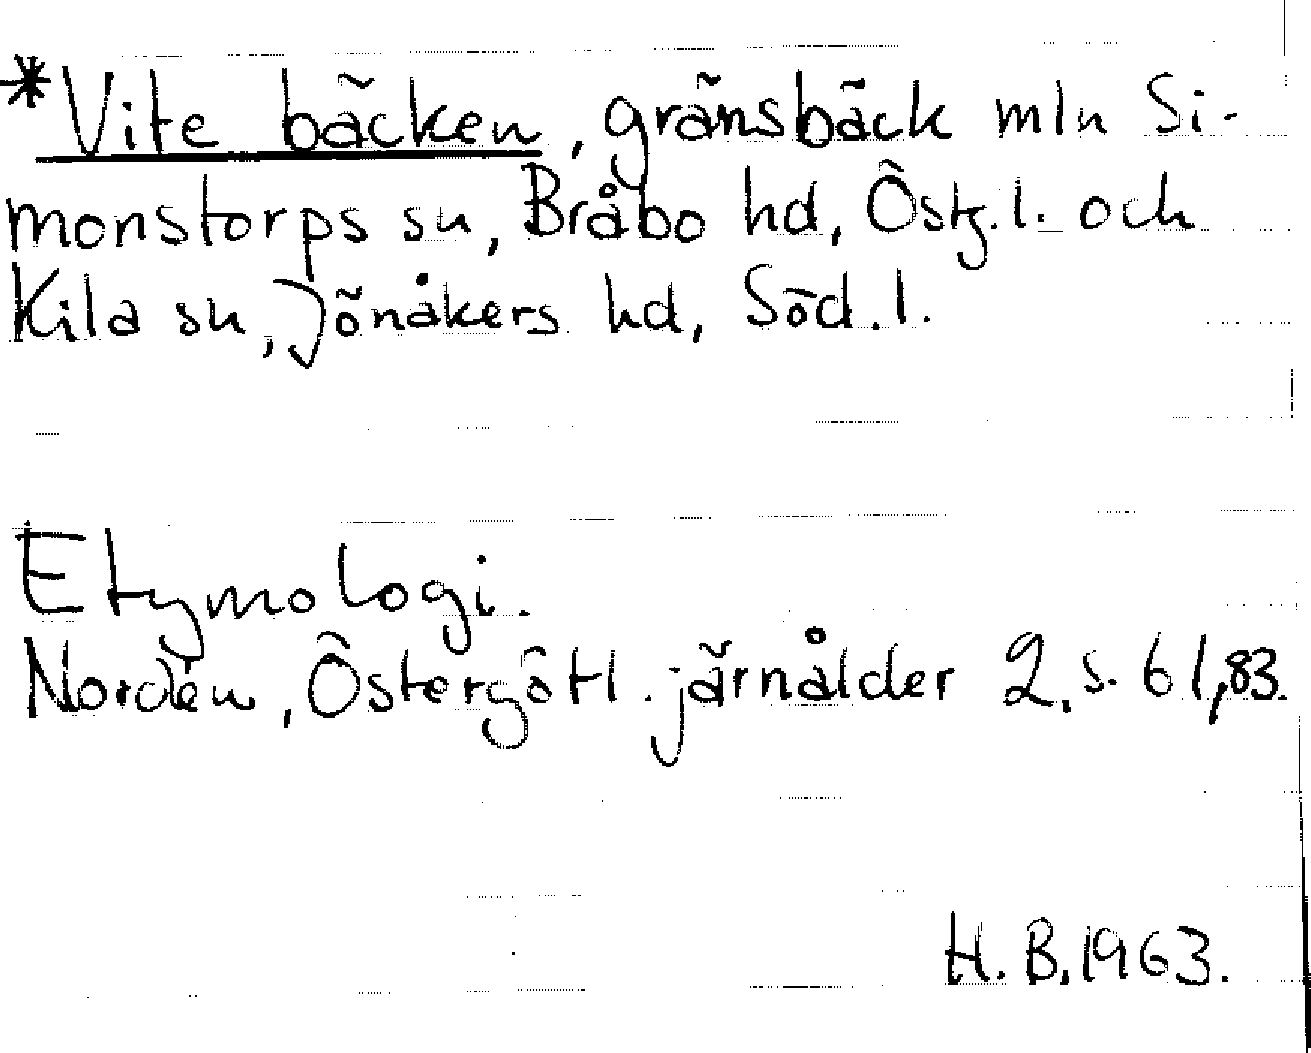 *Vite bäcken, gränsbäck mln Si-
monstorps sn, Bråbo hd, Östg.l. och
Kila sn, Jönåkers hd, Söd.l.
Etymologi.
Nordén, Östergötl. järnålder 2. s. 61,83.
H.B.1963.